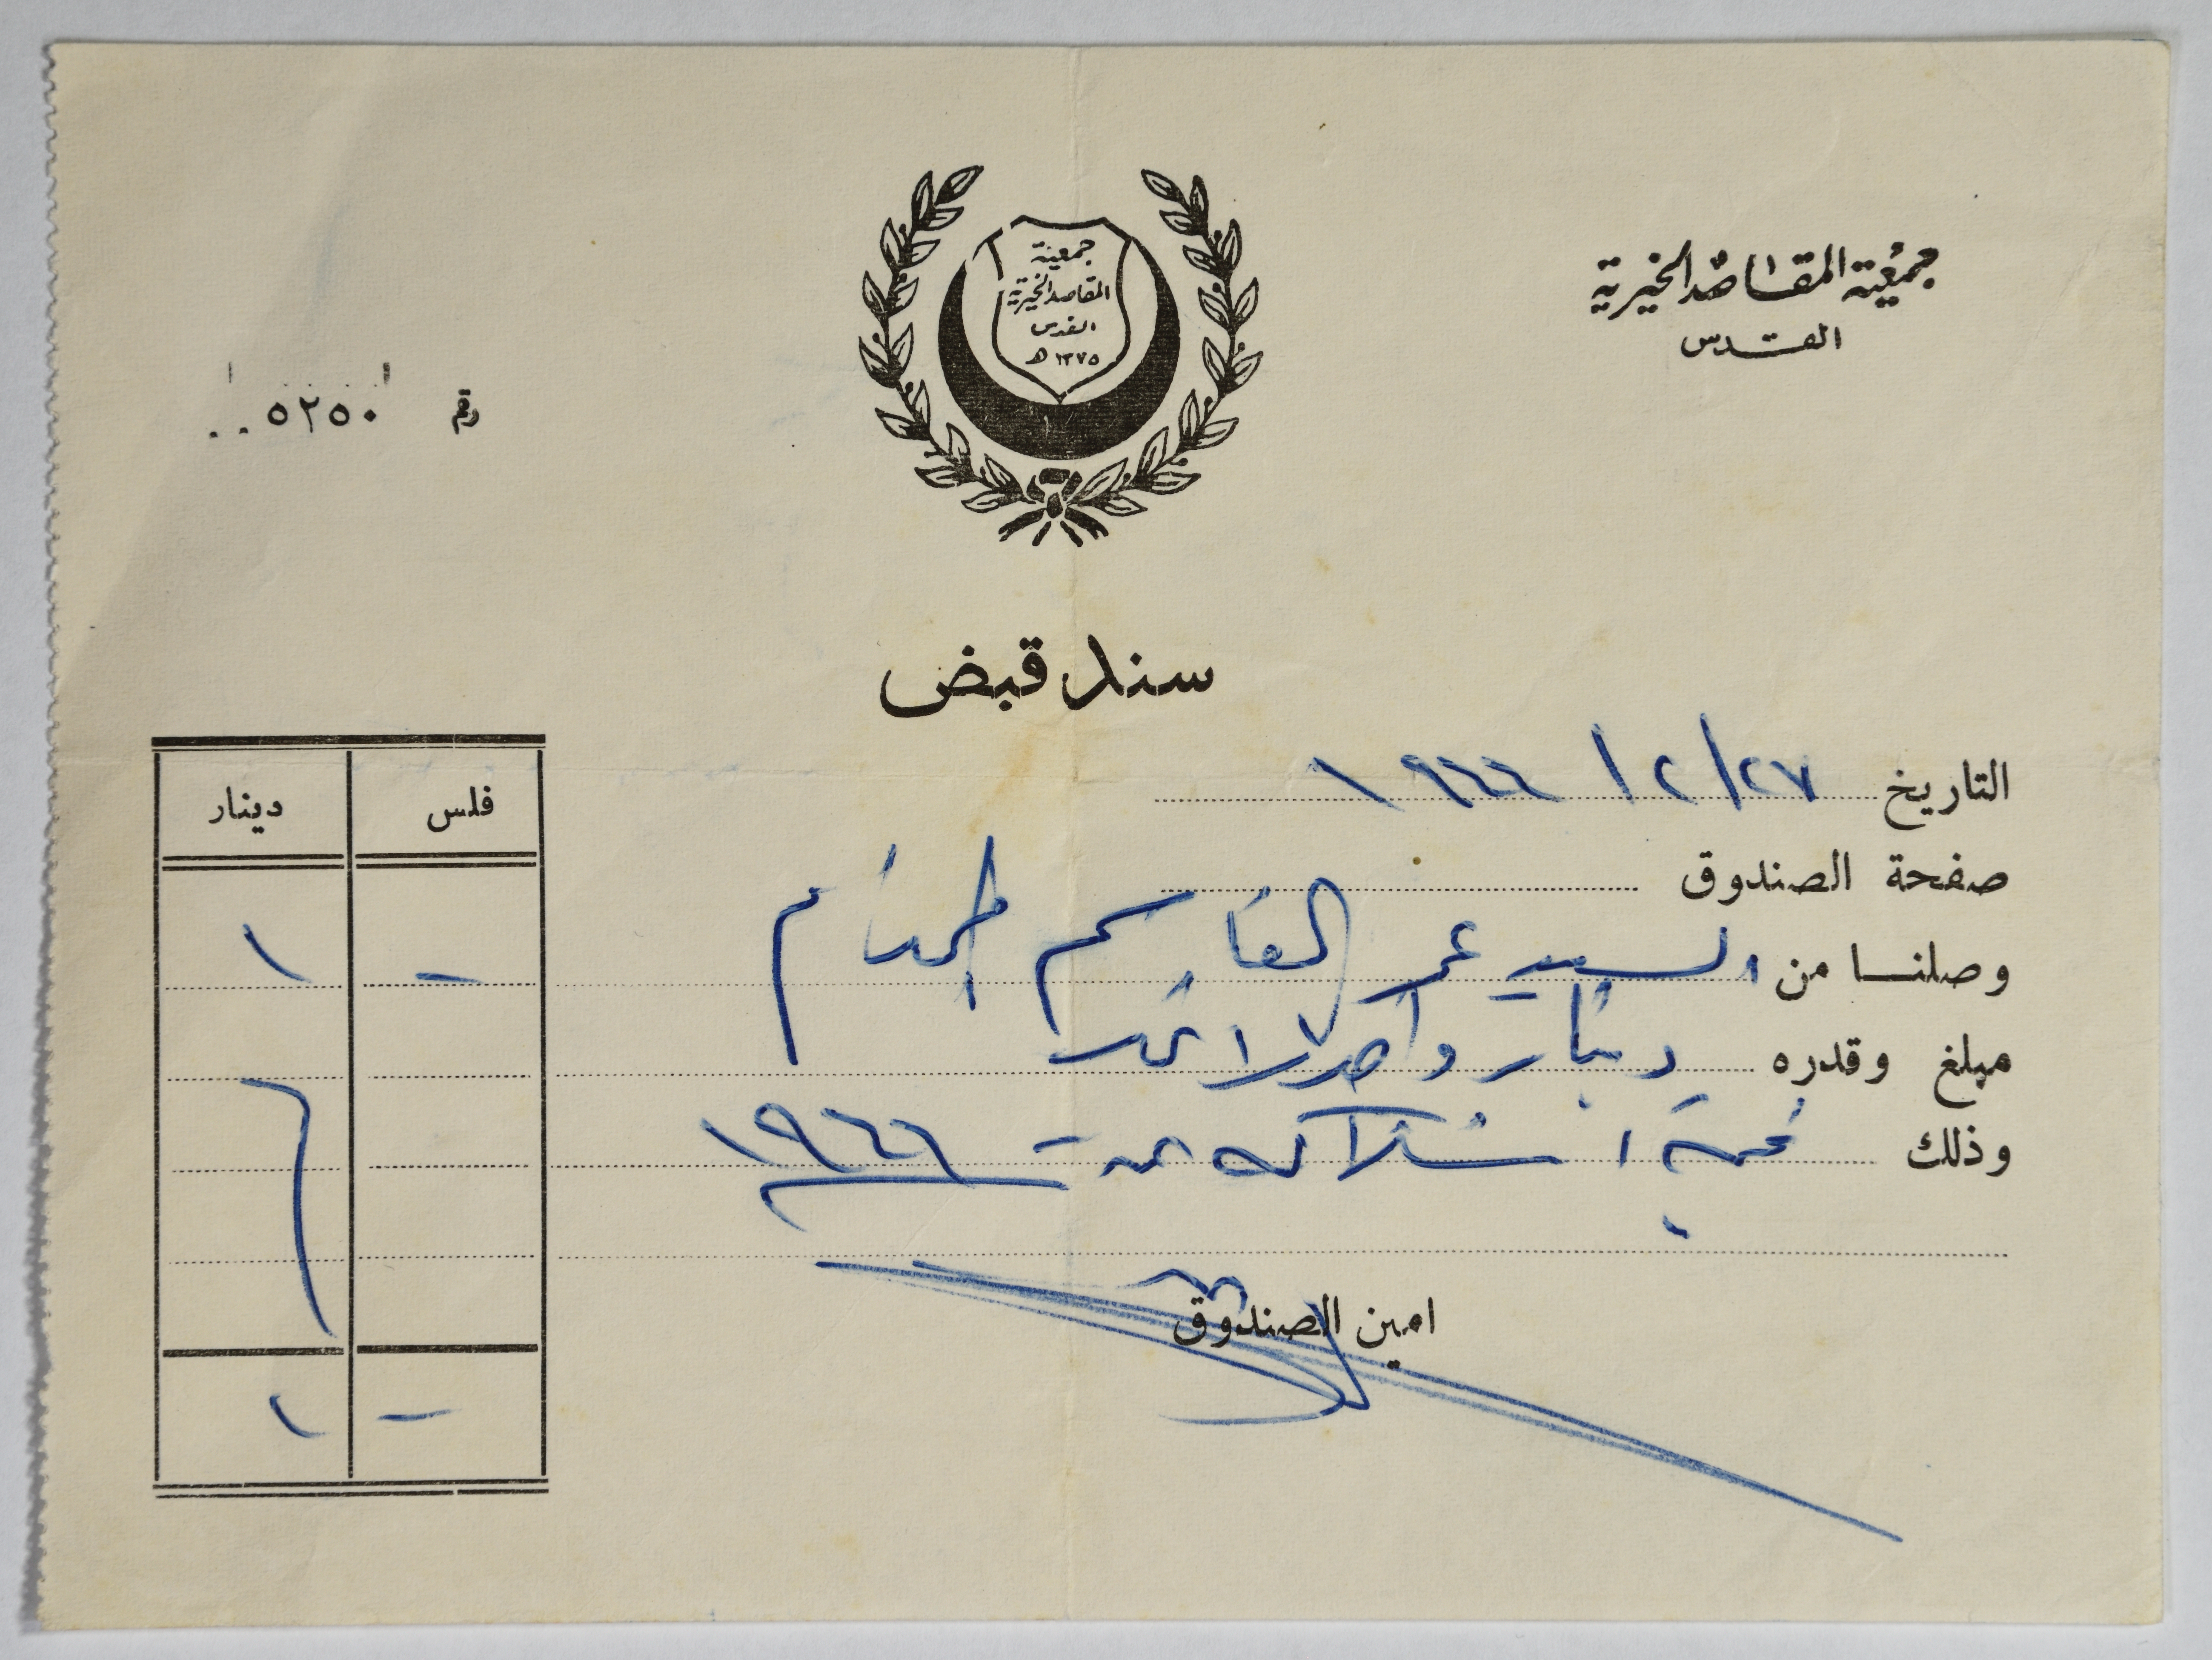 جمعية المقاصد الخيرية
القدس
جمعية
المقاصد الخيرية
القدس
١٣٧٥ هـ
رقم ٠٠٥٢٥٠
سند قبض
التاريخ ٢٧/٢/١٩٦٦
صفحة الصندوق
وصلنا من السيد عمر القاسم المحترم
مبلغ وقدره دينار واحد لا غير
وذلك قيمة اشتراكه عن ١٩٦٦
امين الصندوق
فلس دينار
- ١
- ١